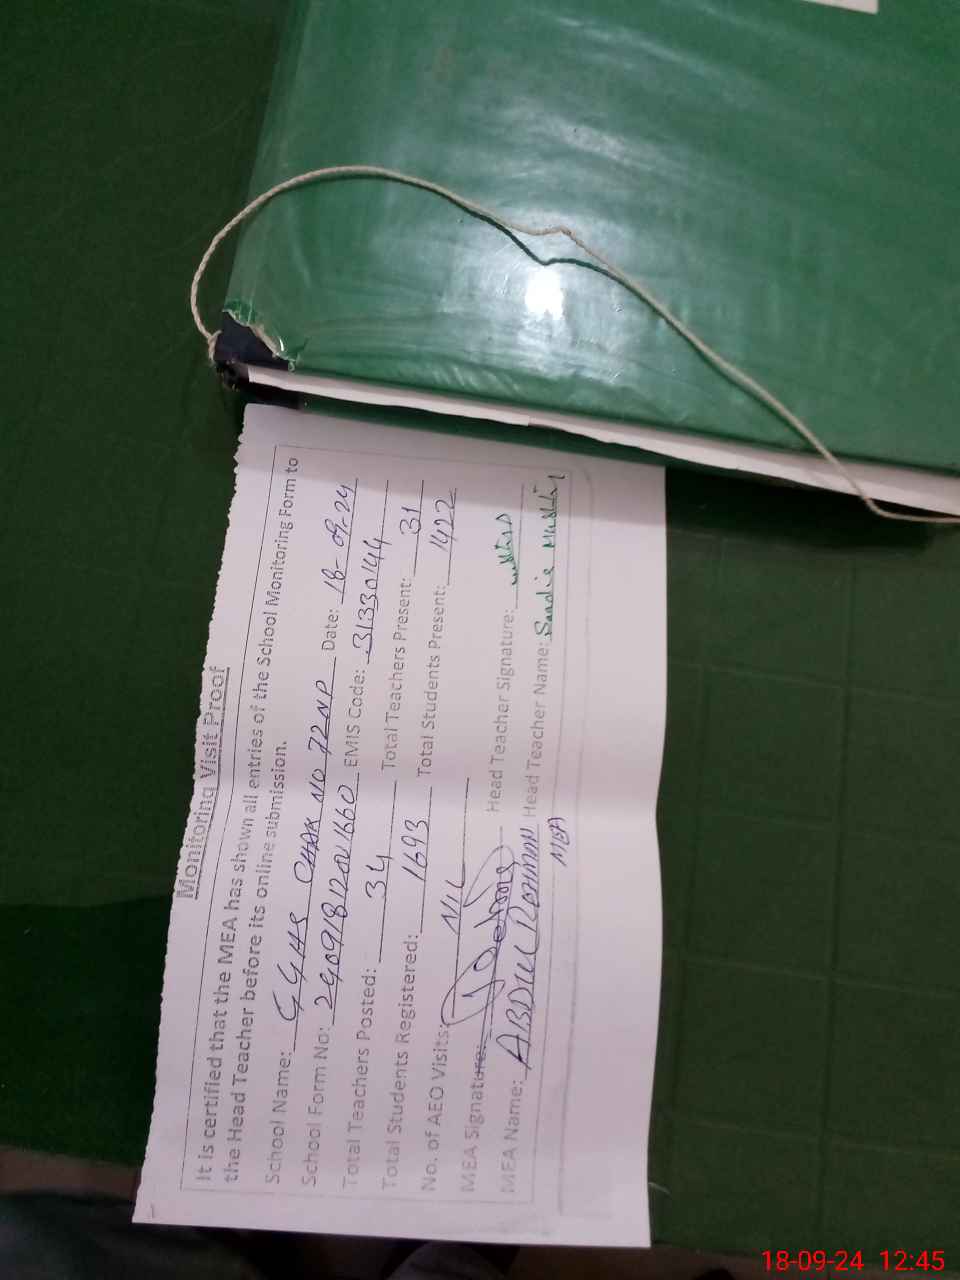 Monitoring Visit Proof
It is certified that the MEA has shown all entries of the School Monitoring Form to
the Head Teacher before its online submission.
School Name: GGHS CHAK NO 72NP Date: 18-09-24
School Form No: 24091812021660 EMIS Code: 31330144
Total Teachers Posted: 34 Total Teachers Present: 31
Total Students Registered: 1693 Total Students Present: 1422
No. of AEO Visits: NIL
MEA Signature: Head Teacher Signature:
MEA Name: ABDUL REHMAN Head Teacher Name: Saadia Mushtaq
MEA
18-09-24 12:45